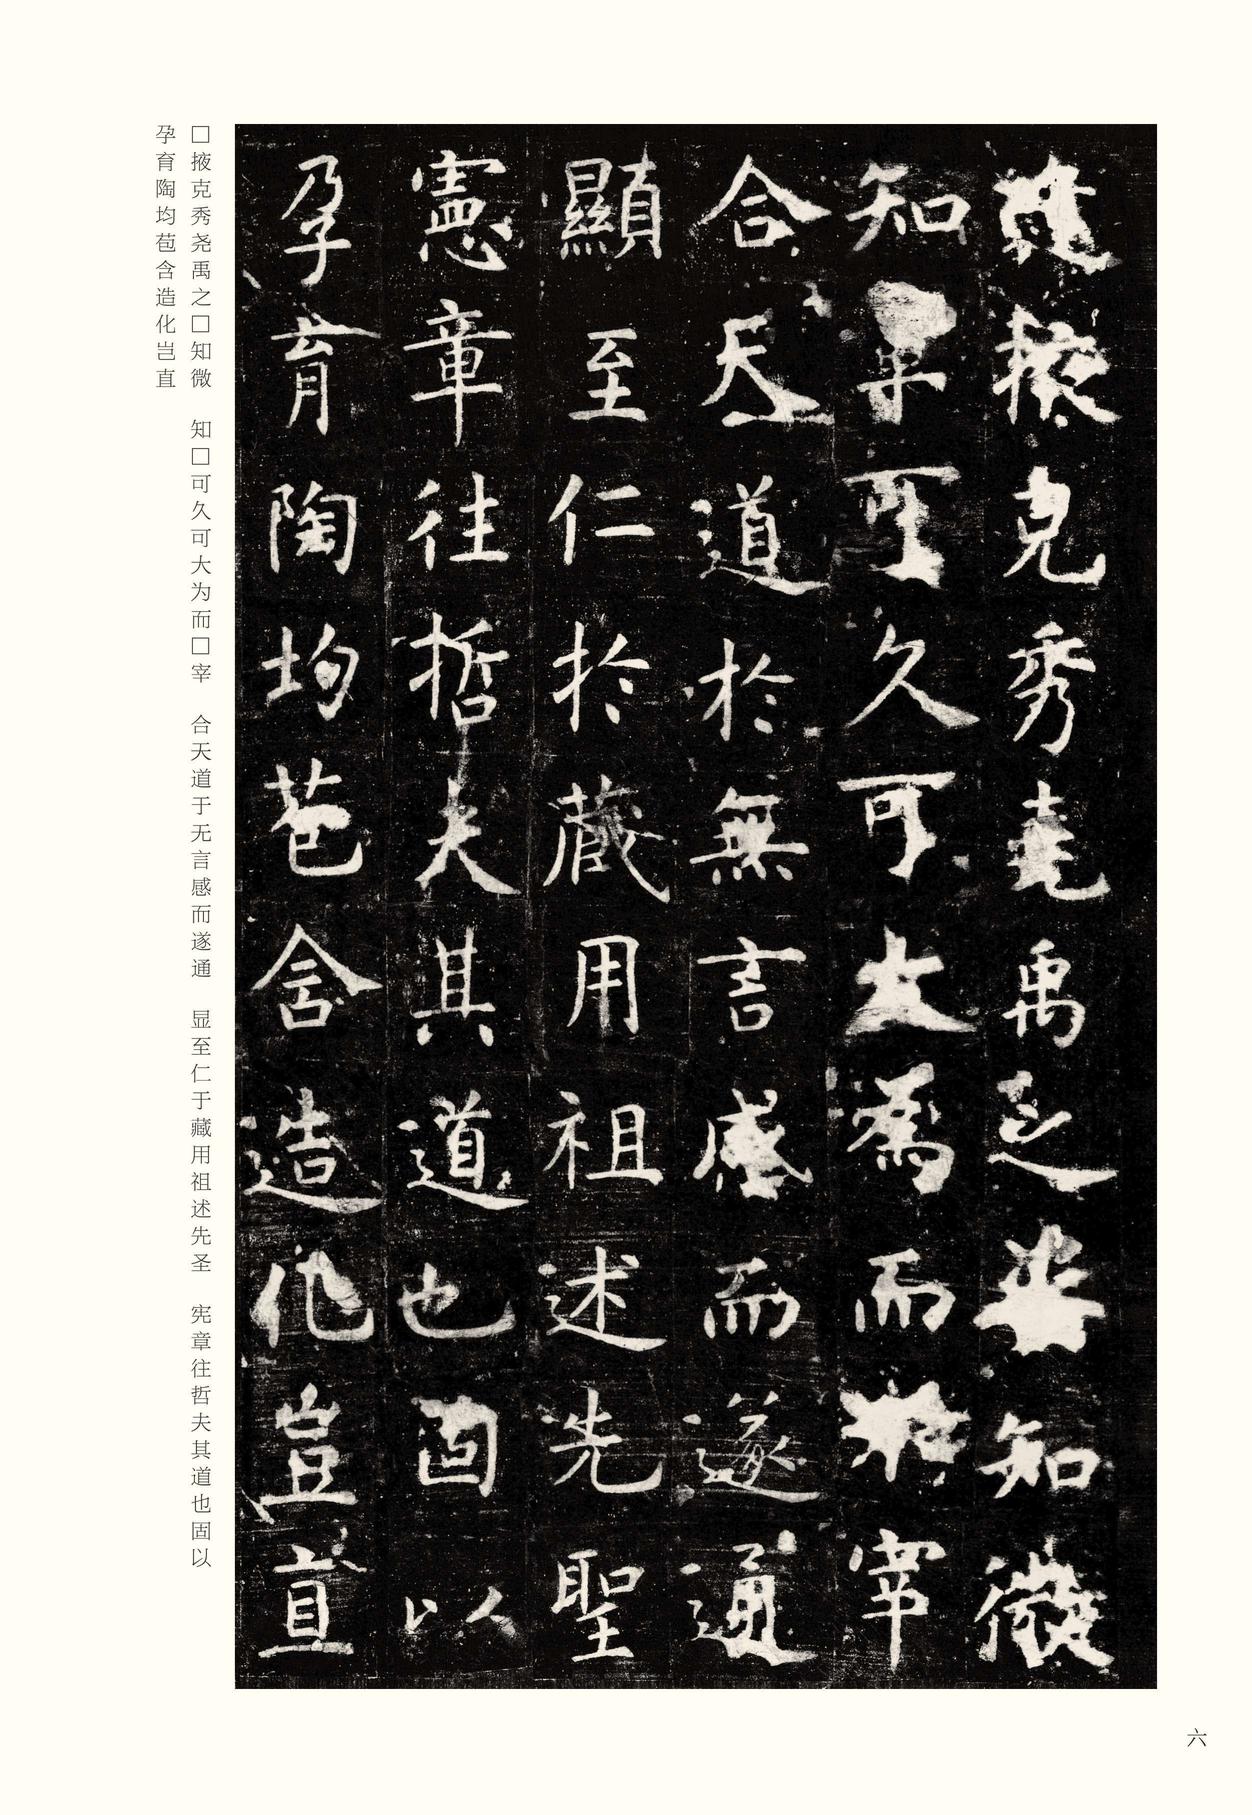 掖克秀堯禹之知微
知可久可大為而宰
合天道於無言感而遂通
顯至仁於藏用祖述先聖
憲章往哲夫其道也固以
孕育陶均苞含造化豈直
□掖克秀尧禹之□知微　知□可久可大为而□宰　合天道于无言感而遂通　显至仁于藏用祖述先圣　宪章往哲夫其道也固以
孕育陶均苞含造化岂直
六